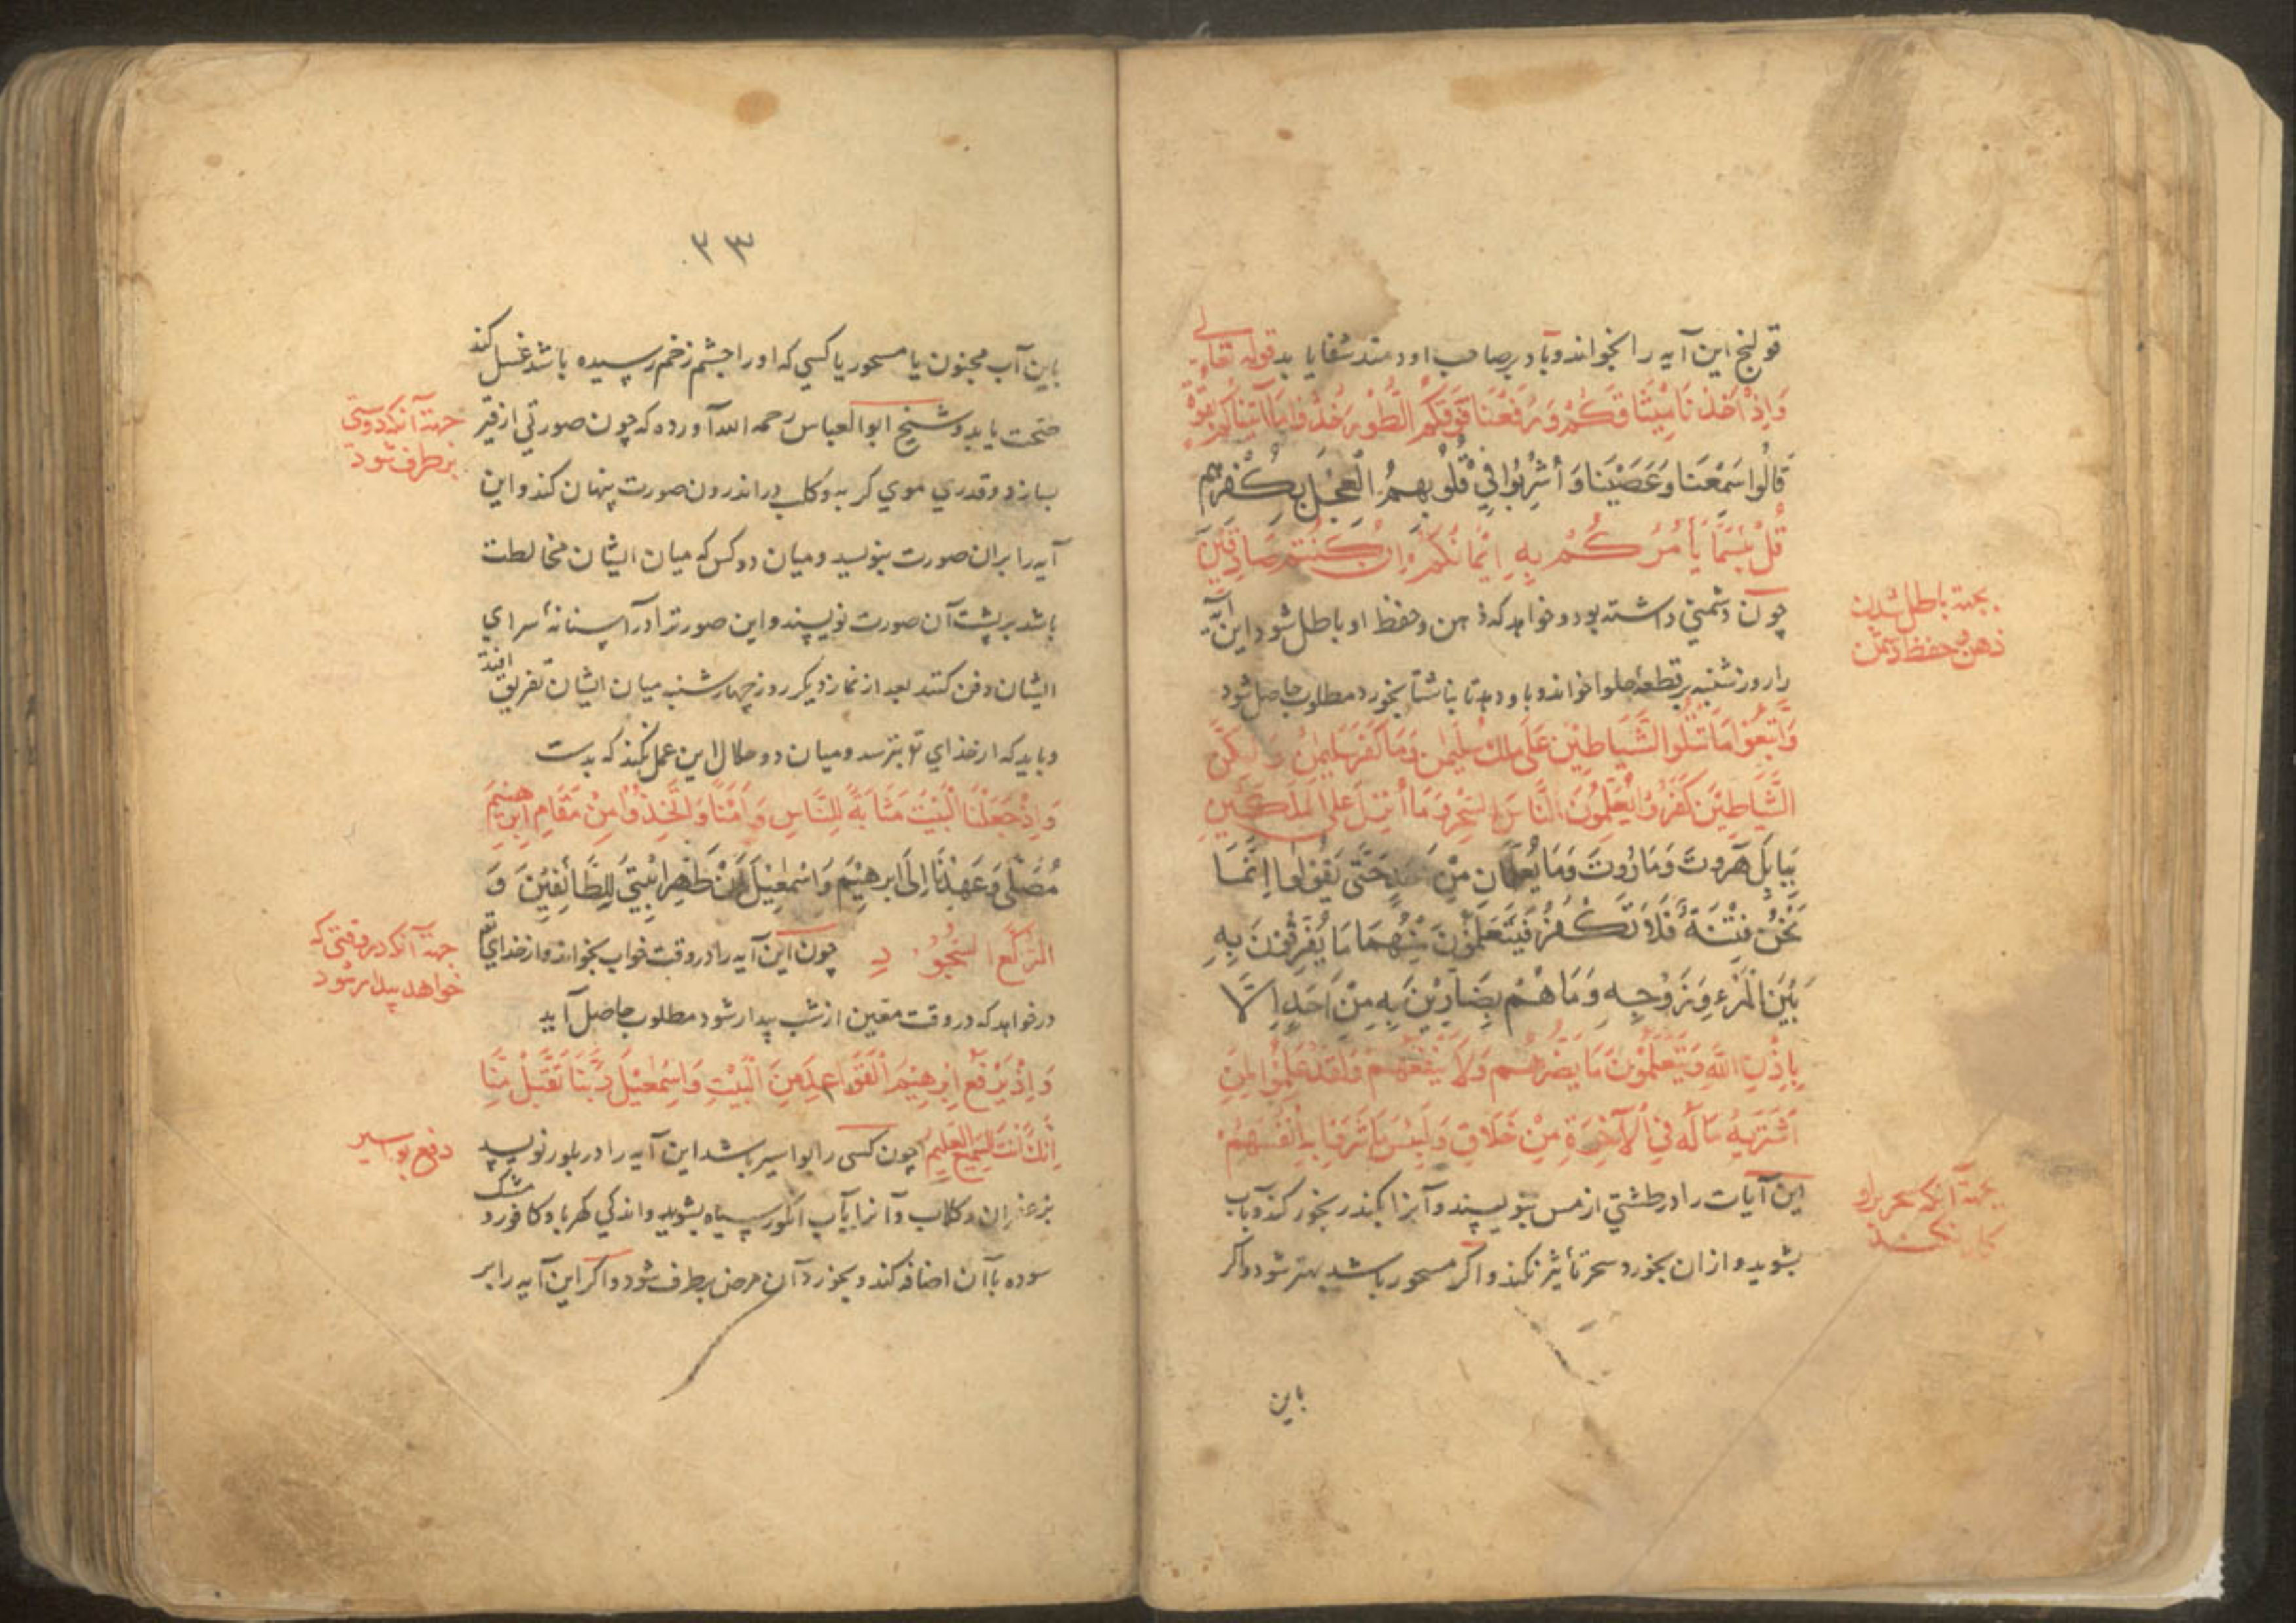 قولنج این آیه را بخواند و باد بر صاحب او دمند شفا یابد قوله تعالی
وَاِذْ اَخَذْنَا مِیثَاقَكُمْ وَرَفَعْنَا فَوْقَكُمُ الطُّورَ خُذُوا مَا آتَیْنَاكُمْ بِقُوَّةٍ
قَالُوا سَمِعْنَا وَعَصَیْنَا وَاُشْرِبُوا فِی قُلُوبِهِمُ الْعِجْلَ بِكُفْرِهِمْ
قُلْ بِئْسَمَا یَأْمُرُكُمْ بِهِ اِیمَانُكُمْ اِنْ كُنْتُمْ صَادِقِینَ
چون دشمنی داشته بود و خواهد که ذهن و حفظ او باطل شود این آیه
بجهة باطل شدن
ذهن و حفظ دشمن
را روز شنبه بر قطعهٔ حلوا خواند و باو دهد تا ناشتا بخورد مطلوب حاصل شود
وَاتَّبَعُوا مَا تَتْلُوا الشَّیَاطِینُ عَلَی مُلْكِ سُلَیْمٰنَ وَمَا كَفَرَ سُلَیْمٰنُ وَلٰكِنَّ
الشَّیَاطِینَ كَفَرُوا یُعَلِّمُونَ النَّاسَ السِّحْرَ وَمَا اُنْزِلَ عَلَی الْمَلَكَیْنِ
بِبَابِلَ هَرُوتَ وَمَارُوتَ وَمَا یُعَلِّمَانِ مِنْ اَحَدٍ حَتَّی یَقُولَا اِنَّمَا
نَحْنُ فِتْنَةٌ فَلَا تَكْفُرْ فَیَتَعَلَّمُونَ مِنْهُمَا مَا یُفَرِّقُونَ بِهِ
بَیْنَ الْمَرْءِ وَزَوْجِهِ وَمَا هُمْ بِضَارِّینَ بِهِ مِنْ اَحَدٍ اِلَّا
بِاِذْنِ اللّٰهِ وَیَتَعَلَّمُونَ مَا یَضُرُّهُمْ وَلَا یَنْفَعُهُمْ وَلَقَدْ عَلِمُوا لَمَنِ
اشْتَرَیهُ مَا لَهُ فِی الْآخِرَةِ مِنْ خَلَاقٍ وَلَبِئْسَ مَا شَرَوْا بِهِ اَنْفُسَهُمْ
این آیات را در طشتی از مس بنویسند و آنرا بکندر بخور کند و بآب
بجهة آنکه سحر برو
کار نکند
بشوید و از آن بخورد سحر تأثیر نکند و اگر مسحور باشد بهتر شود و اگر
باین
٣٣
باین آب مجنون یا مسحور یا کسی که او را چشم زخم رسیده باشد غسل کند
صحت یابد و شیخ ابوالعباس رحمه الله آورده که چون صورتی از قیر
جهة آنکه دوستی
برطرف شود
بسازد و قدری موی گربه و کلب در اندرون صورت پنهان کند و این
آیه را بر آن صورت بنویسد و میان دو کس که میان ایشان مخالطت
باشد بر پشت آن صورت نویسند و این صورترا در آستانهٔ سرای
ایشان دفن کنند بعد از نماز دیگر روز چهارشنبه میان ایشان تفریق افتد
و باید که از خدای تو بترسد و میان دو حلال این عمل نکند که بدست
وَاِذْ جَعَلْنَا الْبَیْتَ مَثَابَةً لِلنَّاسِ وَاَمْنًا وَاتَّخِذُوا مِنْ مَقَامِ اِبْرٰهِیمَ
مُصَلًّی وَعَهِدْنَا اِلَی اِبْرٰهِیمَ وَاسْمٰعِیلَ اَنْ طَهِّرَا بَیْتِیَ لِلطَّائِفِینَ وَ
الرُّكَّعِ السُّجُودِ چون این آیه را در وقت خواب بخواند و از خدای تعـ
جهة آنکه در وقتی که
خواهد بیدار شود
درخواهد که در وقت معین از شب بیدار شود مطلوب حاصل آید
وَاِذْ یَرْفَعُ اِبْرٰهِیمُ الْقَوَاعِدَ مِنَ الْبَیْتِ وَاِسْمٰعِیلُ رَبَّنَا تَقَبَّلْ مِنَّا
اِنَّكَ اَنْتَ السَّمِیعُ الْعَلِیمُ چون کسی را بواسیر باشد این آیه را در بلور نویسد
دفع بواسیر
بزعفران و کلاب و آنرا بآب انگور سیاه بشوید و اندکی کهربا و کافور و مشک
سوده با آن اضافه کند و بخورد آن مرض برطرف شود و اگر این آیه را بر